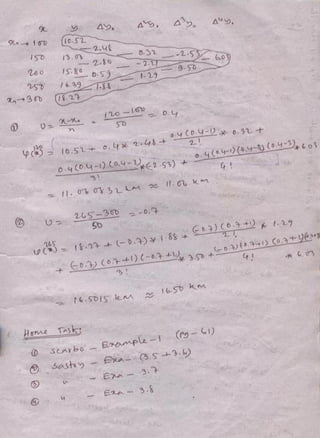 x y Δy. Δ²y. Δ³y. Δ⁴y.
x₀→100 10.52
2.48
150 13.0 0.32 -2.53
2.80 6.03
200 15.80 -2.21
0.59 3.50
250 16.39 1.29
1.88
xₙ→300 18.27
① U = x-x₀/h = 120-100/50 = 0.4
y(120) = 10.52 + 0.4 × 2.48 + 0.4(0.4-1)/2! × 0.32 +
0.4(0.4-1)(0.4-2)/3! ×(-2.53) + 0.4(0.4-1)(0.4-2)(0.4-3)/4! × 6.03
= 11.0 km ≈ 11.06 km
② U = 265-300/50 = -0.7
y(265) = 18.27 + (-0.7) × 1.88 + (-0.7)(0.7+1)/2! × 1.29
+ (-0.7)(0.7+1)(-0.7+2)/3! × 3.50 + (-0.7)(0.7+1)(0.7+2)/4! × 6.03
= 16.5015 km ≈ 16.50 km
Home Task
① Scarbo - Example-1 (pg-61)
② Sastry - Exa - (3.5 + 3.6)
③ " - Exa - 3.7
④ " - Exa - 3.8